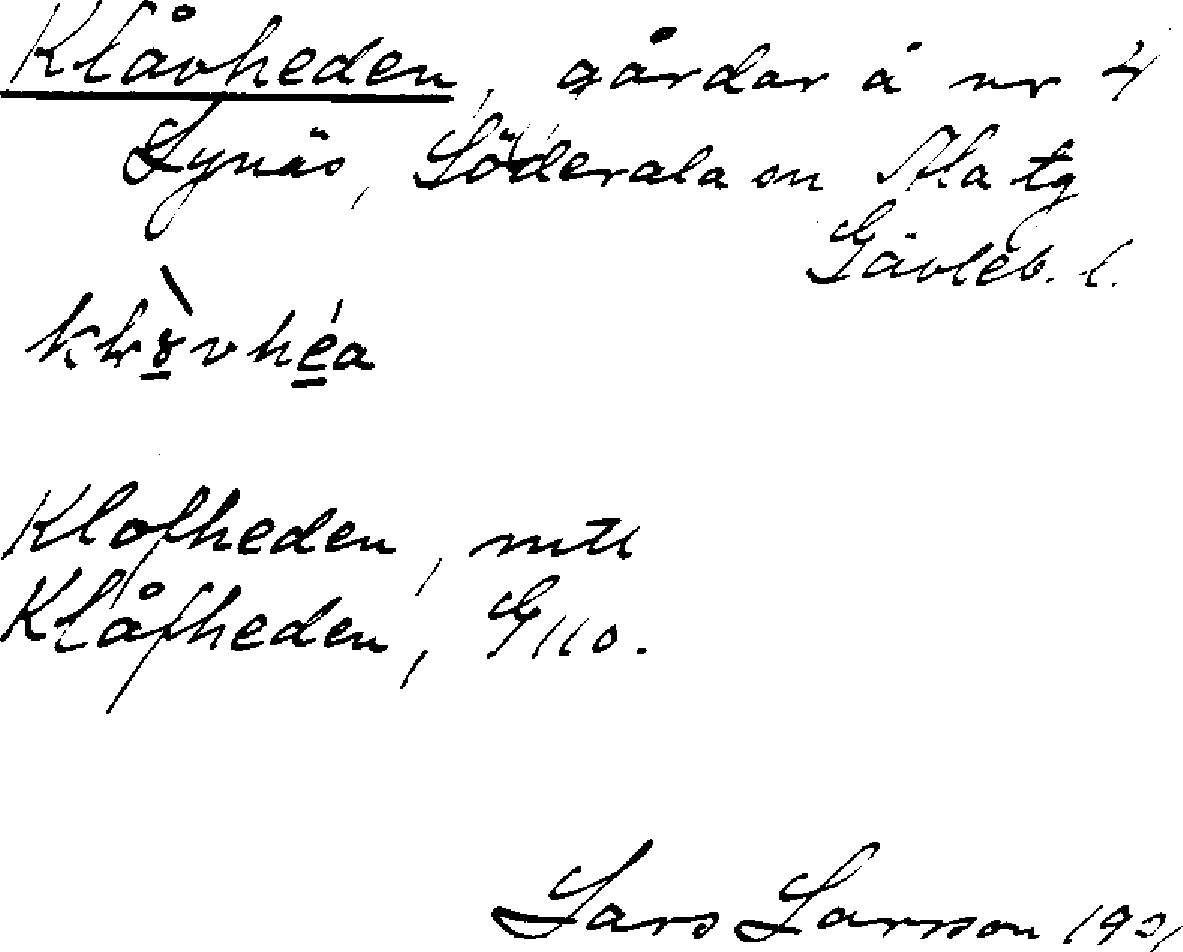 Klåvheden, gårdar å nr 4
Lynäs, Söderala sn Ala tg
Gävleb. l.
Klofheden, mtl
Klåfheden, G 110.
Lars Larsson